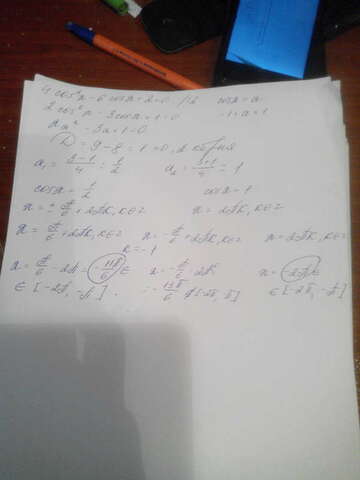 4 cos²x - 6 cosx + 2 = 0 /:2 cosx = a
2 cos²x - 3 cosx + 1 = 0 -1 ≤ a ≤ 1
2a² - 3a + 1 = 0
D = 9 - 8 = 1 > 0, 2 корня
a₁ = (3-1)/4 = 1/2 a₂ = (3+1)/4 = 1
cosx = 1/2 cosx = 1
x = ± π/6 + 2πk, k∈Z x = 2πk, k∈Z
x = π/6 + 2πk, k∈Z x = -π/6 + 2πk, k∈Z x = 2πk, k∈Z
k = -1
x = π/6 - 2π = -11π/6 ∈ x = -π/6 - 2π x = -2π
∈ [-2π, -π] . = -13π/6 ∉ [-2π, -π] ∈ [-2π, -π]